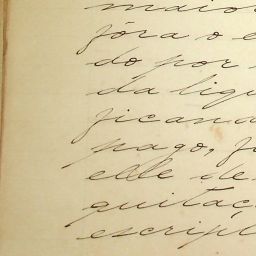 maior
fóra o e
do por
da liqu
ficand
pago, f
elle de
quitaç
escript